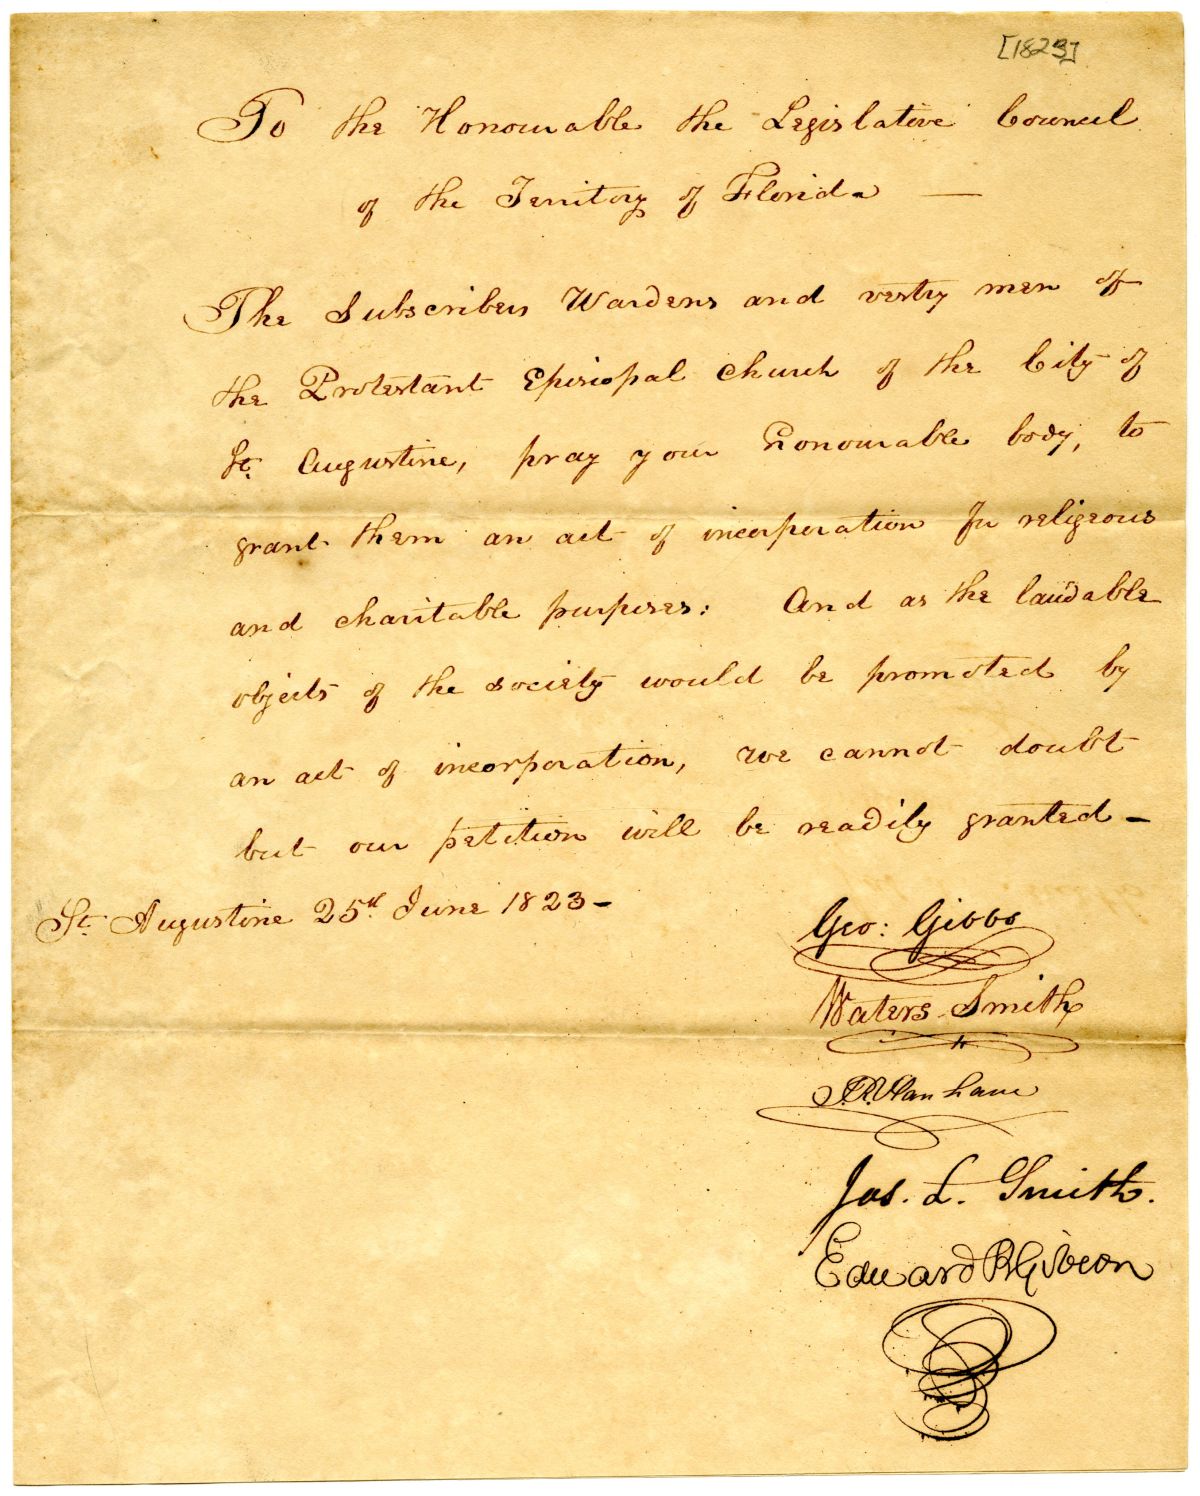 [1823]
To the Honourable the Legislative Council
of the Territory of Florida —
The Subscribers Wardens and vestry men of
the Protestant Episcopal Church of the City of
St. Augustine, pray your Honourable body, to
grant them an act of incorporation for religious
and charitable purposes: And as the laudable
objects of the society would be promoted by
an act of incorporation, we cannot doubt
but our petition will be readily granted —
St. Augustine 25th June 1823 —
Geo: Gibbs
Waters Smith
Jas. L. Smith.
Edward R Gibson